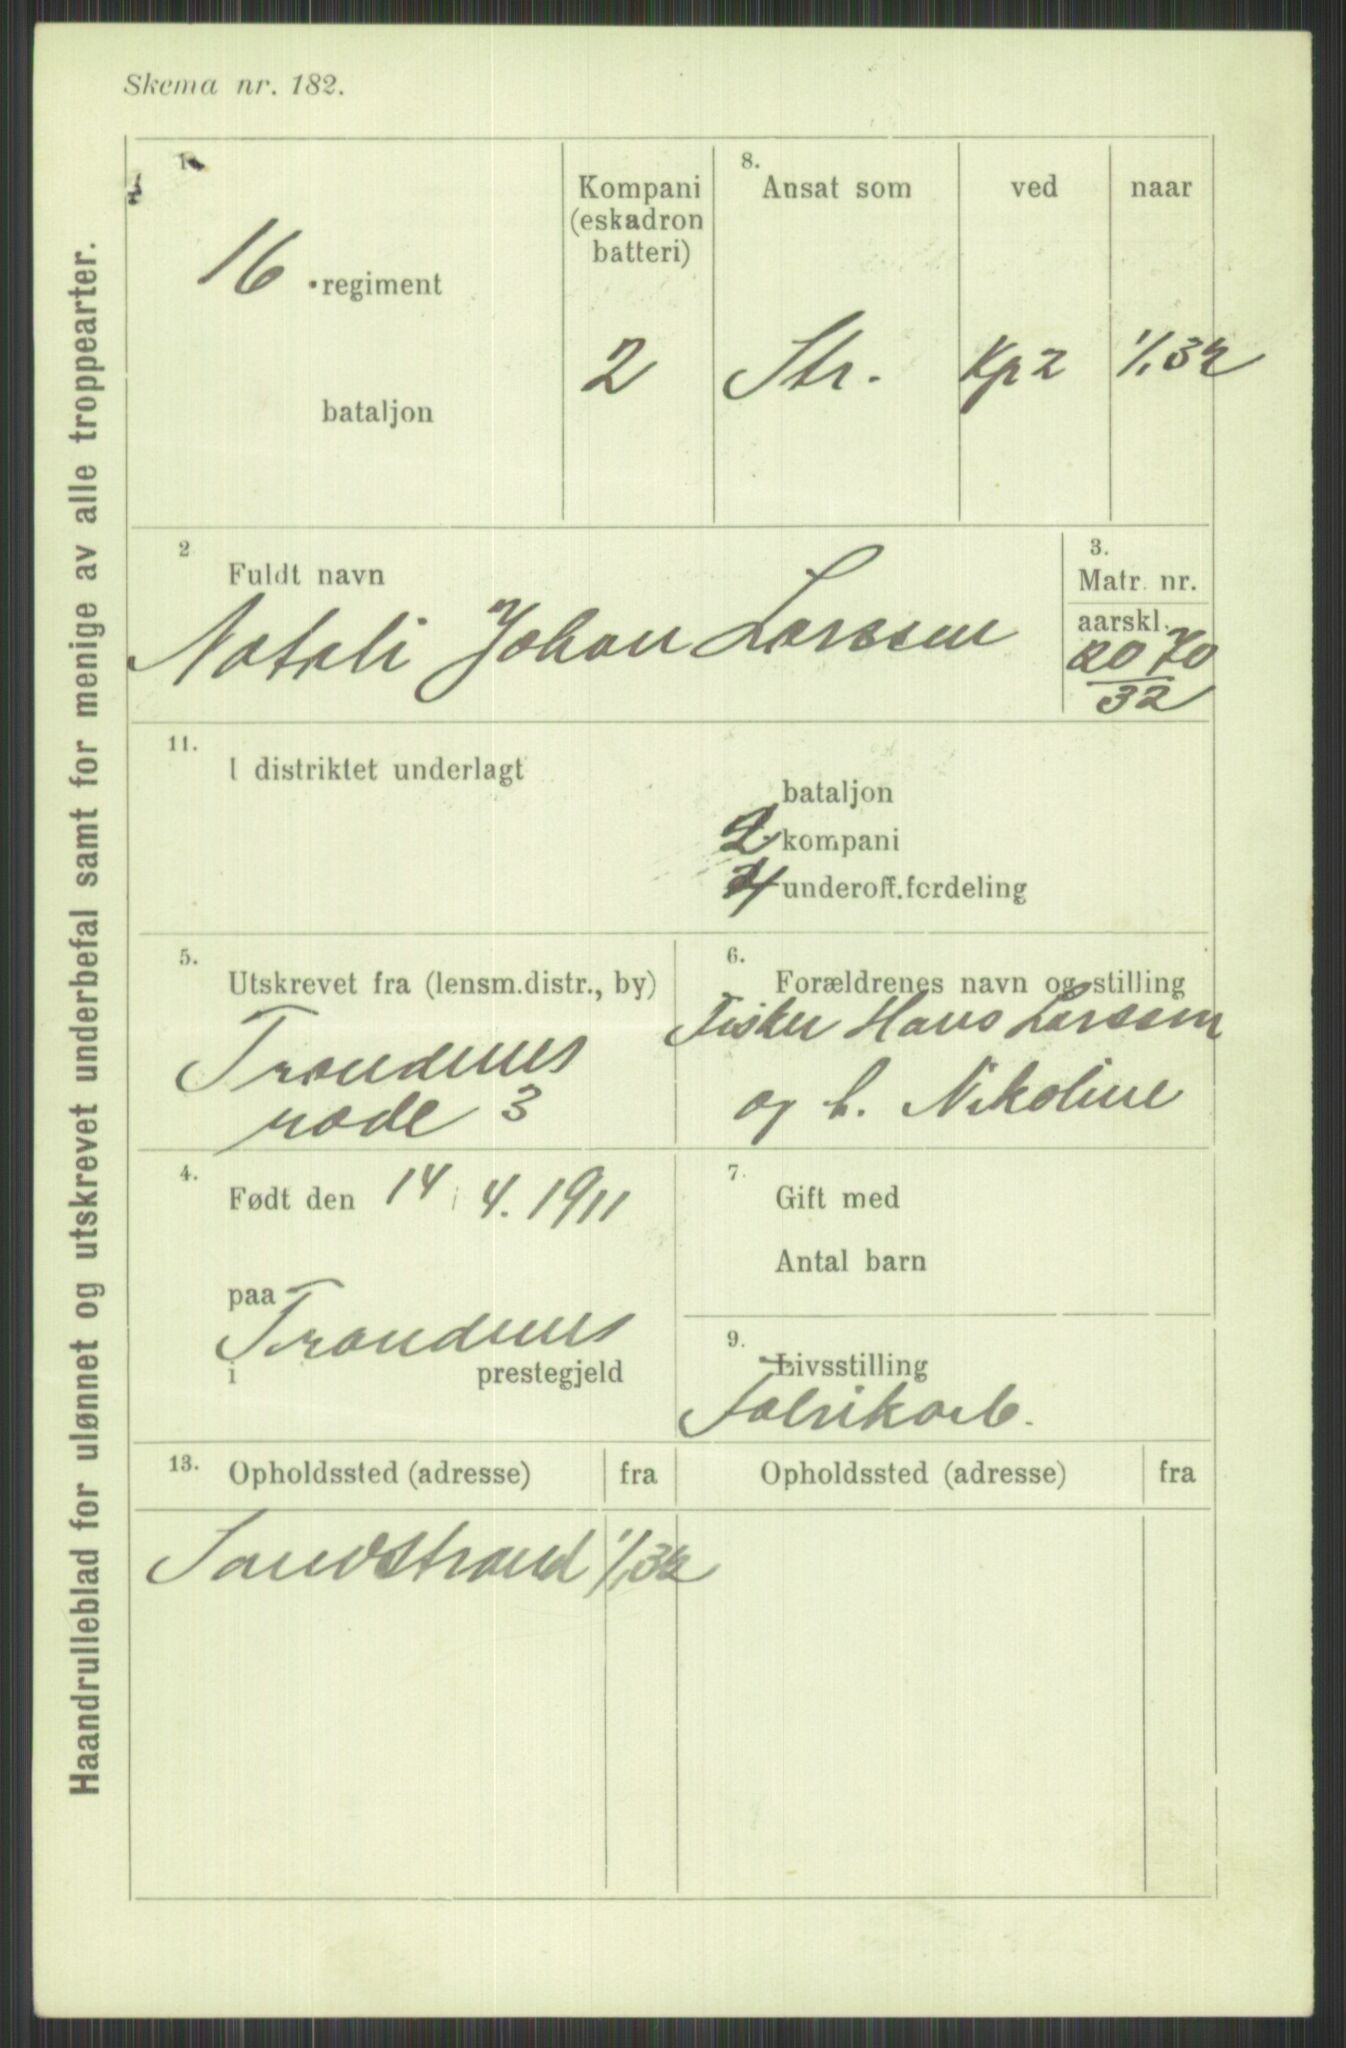 Skema nr. 182.
Haandrulleblad for ulønnet og utskrevet underbefal samt for menige av alle troppearter.
1
16 . regiment
bataljon
Kompani
(eskadron
batteri)
2
8.
Ansat som
ved
naar
Str.
Kp 2
1/1 32
2
Fuldt navn
Natali Johan Larssen
3.
Matr. nr.
aarskl.
2070
32
11.
I distriktet underlagt
bataljon
2 kompani
4 underoff.fordeling
5.
Utskrevet fra (lensm.distr., by)
Trondenes
rode 3
6.
Forældrenes navn og stilling
Fisker Hans Larssen
og h. Nikoline
4.
Født den 14 4. 1911
paa
Trondenes
i prestegjeld
7.
Gift med
Antal barn
9.
Livsstilling
Fabrikarb.
13.
Opholdssted (adresse) fra Opholdssted (adresse) fra
Sandstrand 1/1 32